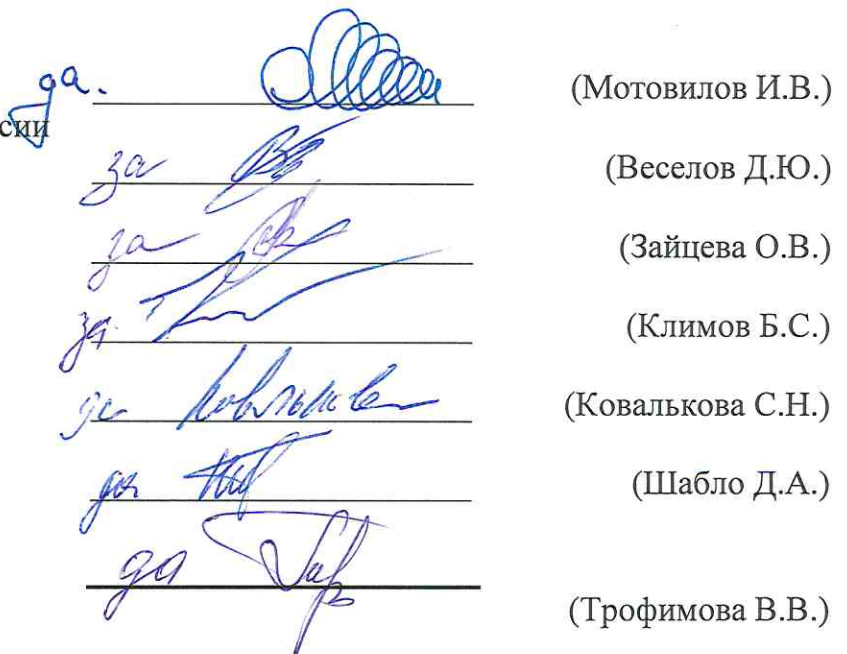 да. (Мотовилов И.В.)
сии
за (Веселов Д.Ю.)
за (Зайцева О.В.)
за (Климов Б.С.)
да Ковалькова (Ковалькова С.Н.)
да (Шабло Д.А.)
да
(Трофимова В.В.)